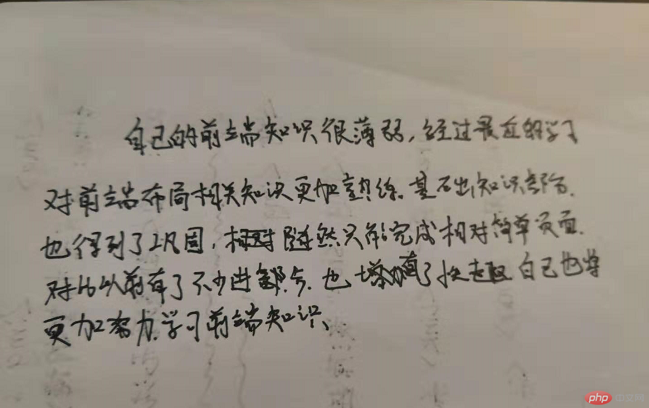 自己的前端知识很薄弱，经过最近的学习
对前端布局相关知识更加熟练.基础知识
也得到了巩固，相对虽然只能完成相对简单页面.
对比以前有了不少进步.也增加了 自己也将
更加努力.学习前端知识、
php